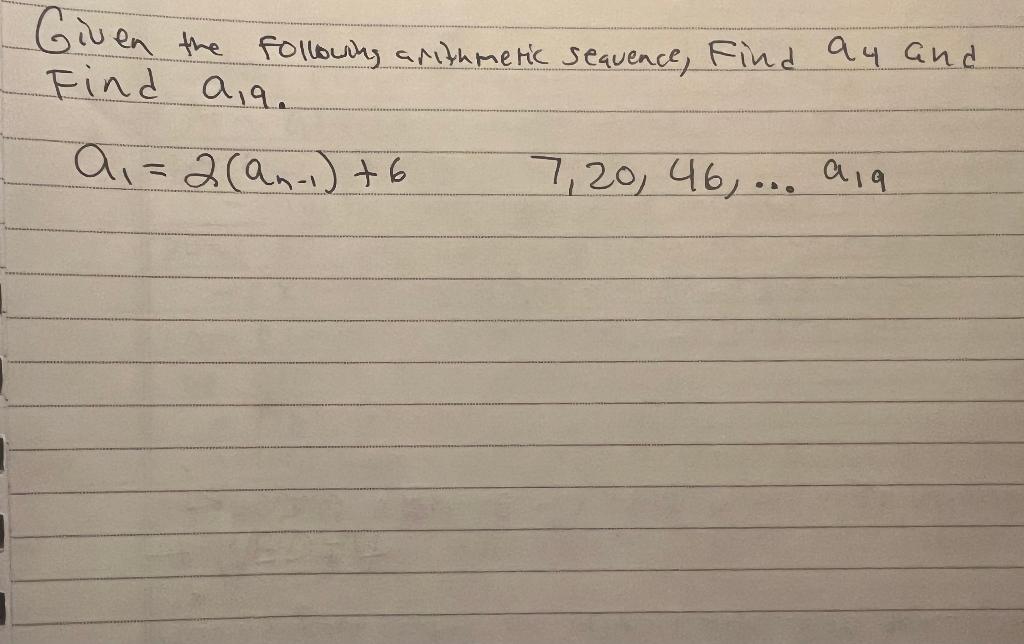 Given the following arithmetic sequence, Find a₄ and
Find a₁₉.
a₁ = 2(aₙ₋₁) + 6 7, 20, 46, ... a₁₉